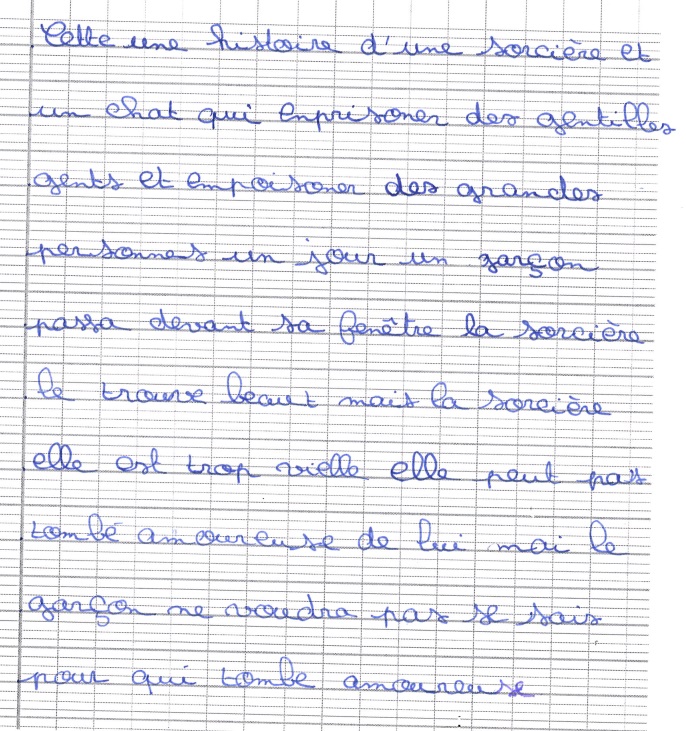 Cette une histoire d'une sorcière et
un chat qui enprisoner des gentilles
gents et empoisoner des grandes
personnes un jour un garçon
passa devant sa fenêtre la sorcière
le trouve beaut mais la sorcière
elle est trop vielle elle peut pas
tombé amoureuse de lui mai le
garçon ne voudra pas se sais
pour qui tombe amoureuse